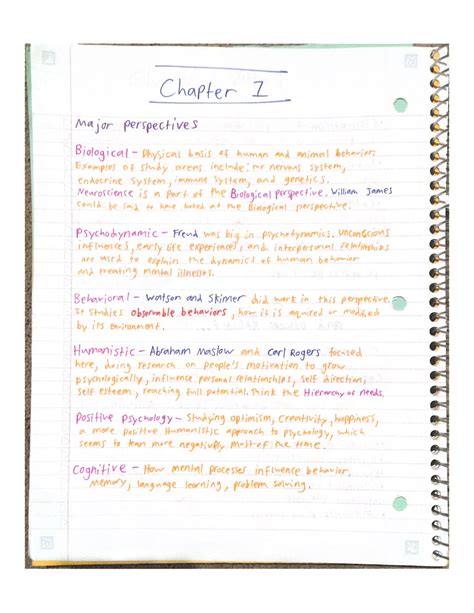 Chapter 1
Major perspectives
Biological - Physical basis of human and animal behavior.
Examples of study areas include: the nervous system,
endocrine system, immune system, and genetics.
Neuroscience is a part of the Biological perspective. William James
could be said to have looked at the Biological perspective.
Psychodynamic - Freud was big in psychodynamics. Unconscious
influences, early life experiences, and interpersonal relationships
are used to explain the dynamics of human behavior
and treating mental illnesses.
Behavioral - Watson and Skinner did work in this perspective.
It studies observable behaviors, how it is aquired or modified
by its environment.
Humanistic - Abraham Maslow and Carl Rogers focused
here, doing research on people's motivation to grow
psychologically, influence personal relationships, self direction,
self esteem, reaching full potential. Think the Hierarchy of needs.
Positive psychology - Studying optimism, creativity, happiness,
a more positive Humanistic approach to psychology, which
seems to lean more negatively most of the time.
Cognitive - How mental processes influence behavior.
Memory, language learning, problem solving.